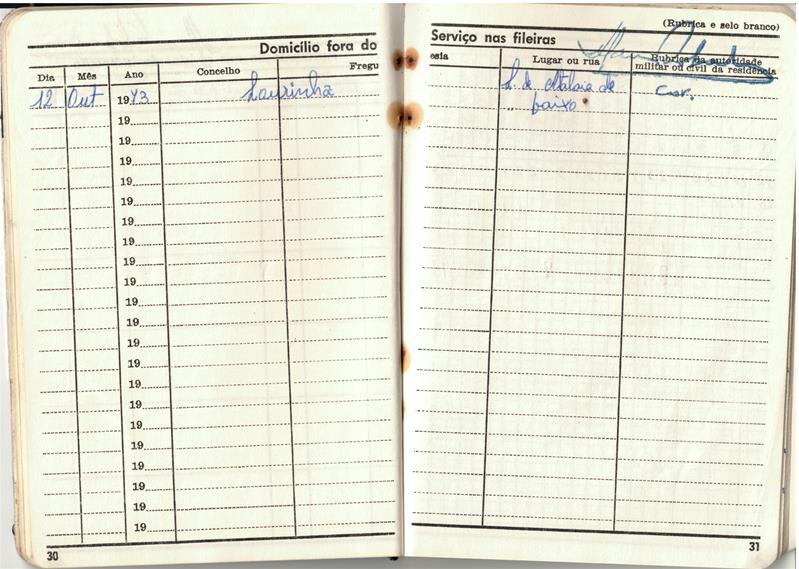 (Rubrica e selo branco)
Domicílio fora do Serviço nas fileiras
Dia Mês Ano Concelho Freguesia Lugar ou rua Rubrica da autoridade
militar ou civil da residência
12 Out 1973 Lourinhã L. de Atalaia de
baixo
19
19
19
19
19
19
19
19
19
19
19
19
19
19
19
19
19
19
19
19
19
30
31